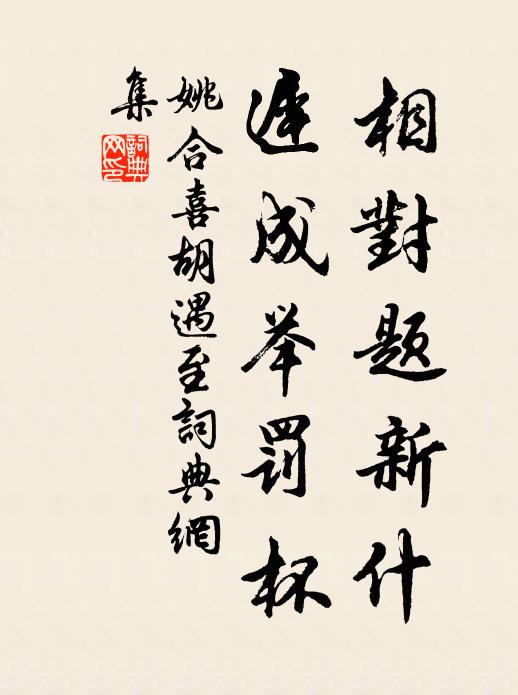 相對题新什
遅成举罰杯
姚合喜胡遇至詞典網
集
詞典
网印